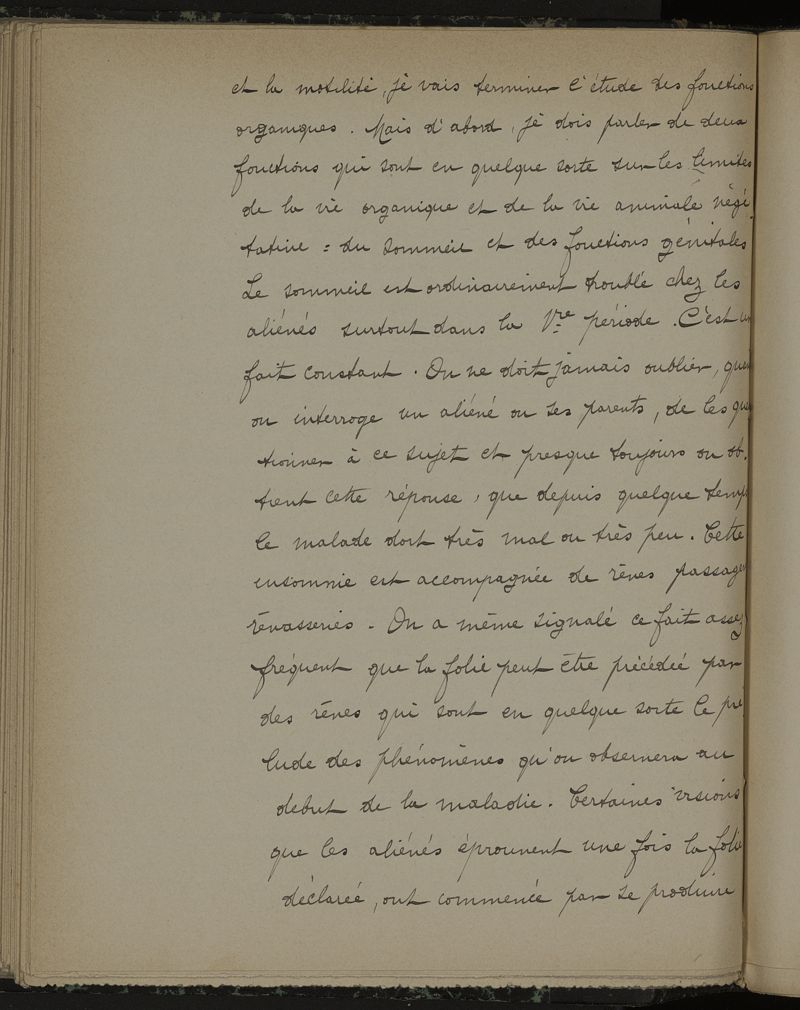 et la motilité, je vais terminer l'étude des fonctions
organiques. Mais d'abord, je dois parler de deux
fonctions qui sont en quelque sorte sur les limites
de la vie organique et de la vie animale végé
tative = du sommeil et des fonctions génitales
Le sommeil est ordinairement troublé chez les
aliénés surtout dans la 1re période. C'est un
fait constant. On ne doit jamais oublier, quan
on interroge un aliéné ou ses parents, de les ques
tionner à ce sujet et presque toujours on ob.
tient cette réponse, que depuis quelque temps
le malade dort très mal ou très peu. Cette
insomnie est accompagnée de rêves passage
rêvasseries. On a même signalé ce fait assez
fréquent que la folie peut être précédée par
des rêves qui sont en quelque sorte le pré
lude des phénomènes qu'on observera au
debut de la maladie. Certaines visions
que les aliénés éprouvent une fois la folie
déclarée, ont commencé par se produire